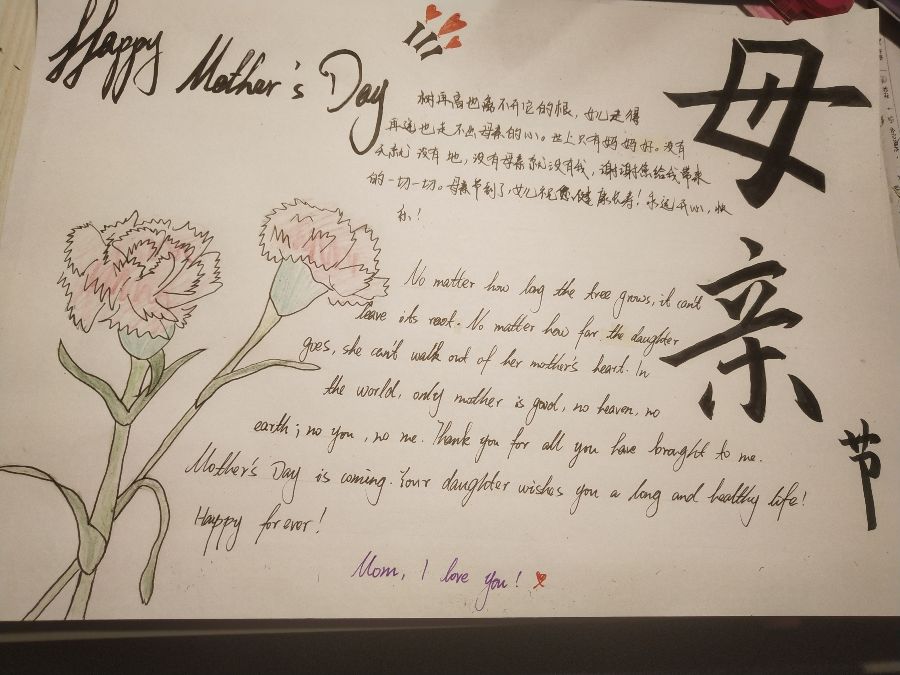 Happy Mother's Day
母亲节
树再高也离不开它的根，女儿走得
再远也走不出母亲的心。世上只有妈妈好。没有
天就没有地，没有母亲就没有我，谢谢您给我带来
的一切一切。母亲节到了女儿祝您健康长寿！永远开心，快
乐！
No matter how long the tree grows, it can't
leave its root. No matter how far the daughter
goes, she can't walk out of her mother's heart. In
the world, only mother is good, no heaven, no
earth; no you, no me. Thank you for all you have brought to me.
Mother's Day is coming. Your daughter wishes you a long and healthy life!
Happy forever!
Mom, I love you!